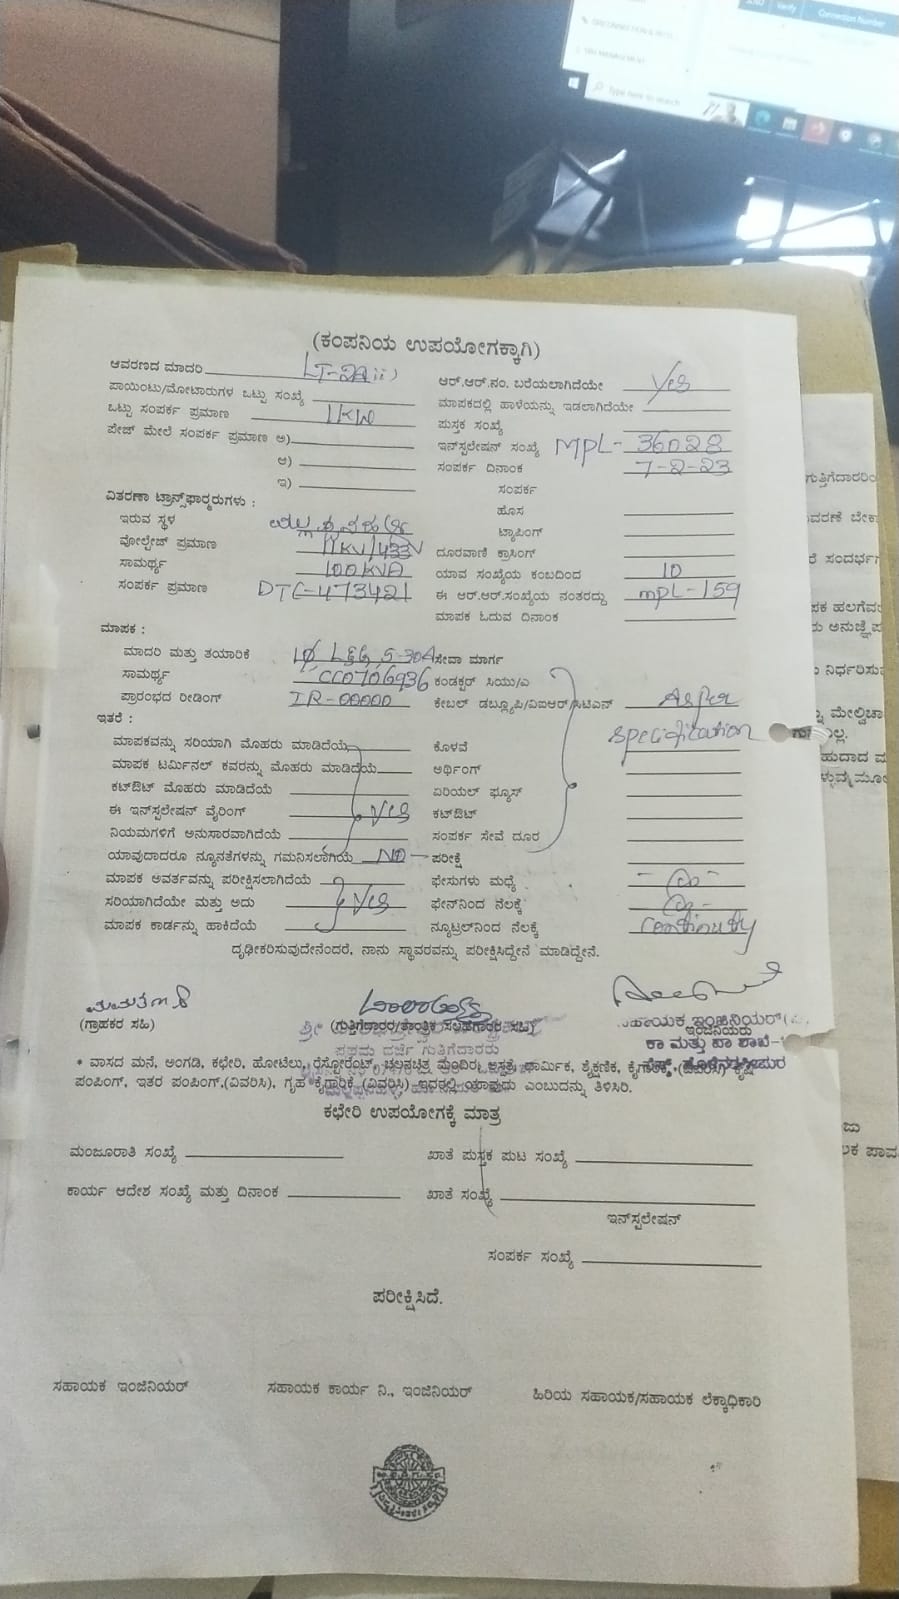 Verify
Connection Number
Type here to search
(ಕಂಪನಿಯ ಉಪಯೋಗಕ್ಕಾಗಿ)
ಆವರಣದ ಮಾದರಿ LT-2Aii) ಆರ್.ಆರ್.ನಂ. ಬರೆಯಲಾಗಿದೆಯೇ Yes
ಪಾಯಿಂಟು/ಮೋಟಾರುಗಳ ಒಟ್ಟು ಸಂಖ್ಯೆ ಮಾಪಕದಲ್ಲಿ ಹಾಳೆಯನ್ನು ಇಡಲಾಗಿದೆಯೇ
ಒಟ್ಟು ಸಂಪರ್ಕ ಪ್ರಮಾಣ 1KW ಪುಸ್ತಕ ಸಂಖ್ಯೆ
ಪೇಜ್ ಮೇಲೆ ಸಂಪರ್ಕ ಪ್ರಮಾಣ ಅ) ಇನ್‌ಸ್ಟಲೇಷನ್ ಸಂಖ್ಯೆ MPL-36028
ಆ) ಸಂಪರ್ಕ ದಿನಾಂಕ 7-2-23
ಇ) ಸಂಪರ್ಕ
ವಿತರಣಾ ಟ್ರಾನ್ಸ್‌ಫಾರ್ಮರುಗಳು : ಹೊಸ
ಇರುವ ಸ್ಥಳ ಟ್ಯಾಪಿಂಗ್
ವೋಲ್ಟೇಜ್ ಪ್ರಮಾಣ 11KV/433V ದೂರವಾಣಿ ಕ್ರಾಸಿಂಗ್
ಸಾಮರ್ಥ್ಯ 100KVA ಯಾವ ಸಂಖ್ಯೆಯ ಕಂಬದಿಂದ 10
ಸಂಪರ್ಕ ಪ್ರಮಾಣ DTC-473421 ಈ ಆರ್.ಆರ್.ಸಂಖ್ಯೆಯ ನಂತರದ್ದು mpL-159
ಮಾಪಕ ಓದುವ ದಿನಾಂಕ
ಮಾಪಕ :
ಮಾದರಿ ಮತ್ತು ತಯಾರಿಕೆ 1ϕ L&G, 5-30A ಸೇವಾ ಮಾರ್ಗ
ಸಾಮರ್ಥ್ಯ CC0706936 ಕಂಡಕ್ಟರ್ ಸಿಯು/ಎ
ಪ್ರಾರಂಭದ ರೀಡಿಂಗ್ IR-00000 ಕೇಬಲ್ ಡಬ್ಲ್ಯೂಪಿ/ವಿಐಆರ್/ಸಿಟಿಎನ್ As per
ಇತರೆ : specification
ಮಾಪಕವನ್ನು ಸರಿಯಾಗಿ ಮೊಹರು ಮಾಡಿದೆಯೆ ಕೊಳವೆ
ಮಾಪಕ ಟರ್ಮಿನಲ್ ಕವರನ್ನು ಮೊಹರು ಮಾಡಿದೆಯೆ ಅರ್ಥಿಂಗ್
ಕಟ್‌ಔಟ್ ಮೊಹರು ಮಾಡಿದೆಯೆ ಏರಿಯಲ್ ಫ್ಯೂಸ್
ಈ ಇನ್‌ಸ್ಟಲೇಷನ್ ವೈರಿಂಗ್ Yes ಕಟ್‌ಔಟ್
ನಿಯಮಗಳಿಗೆ ಅನುಸಾರವಾಗಿದೆಯೆ ಸಂಪರ್ಕ ಸೇವೆ ದೂರ
ಯಾವುದಾದರೂ ನ್ಯೂನತೆಗಳನ್ನು ಗಮನಿಸಲಾಗಿಯೆ NO ಪರೀಕ್ಷೆ
ಮಾಪಕ ಅವರ್ತವನ್ನು ಪರೀಕ್ಷಿಸಲಾಗಿದೆಯೆ ಫೇಸುಗಳು ಮಧ್ಯೆ
ಸರಿಯಾಗಿದೆಯೇ ಮತ್ತು ಅದು Yes ಫೇಸ್‌ನಿಂದ ನೆಲಕ್ಕೆ
ಮಾಪಕ ಕಾರ್ಡನ್ನು ಹಾಕಿದೆಯೆ ನ್ಯೂಟ್ರಲ್‌ನಿಂದ ನೆಲಕ್ಕೆ Continuty
ದೃಢೀಕರಿಸುವುದೇನೆಂದರೆ, ನಾನು ಸ್ಥಾವರವನ್ನು ಪರೀಕ್ಷಿಸಿದ್ದೇನೆ ಮಾಡಿದ್ದೇನೆ.
(ಗ್ರಾಹಕರ ಸಹಿ) (ಗುತ್ತಿಗೆದಾರರ/ತಾಂತ್ರಿಕ ಸಲಹೆಗಾರರ ಸಹಿ) ಇಂಜಿನಿಯರು
ಪ್ರಥಮ ದರ್ಜೆ ಗುತ್ತಿಗೆದಾರರು
ಕಾ ಮತ್ತು ಪಾ ಶಾಖೆ
* ವಾಸದ ಮನೆ, ಅಂಗಡಿ, ಕಛೇರಿ, ಹೋಟೆಲು, ರೆಸ್ಟೋರೆಂಟ್, ಚಲನಚಿತ್ರ ಮಂದಿರ, ಆಸ್ಪತ್ರೆ, ಧಾರ್ಮಿಕ, ಶೈಕ್ಷಣಿಕ, ಕೈಗಾರಿಕೆ, (ವಿವರಿಸಿ) ಕೃಷಿ
ಪಂಪಿಂಗ್, ಇತರ ಪಂಪಿಂಗ್,(ವಿವರಿಸಿ), ಗೃಹ ಕೈಗಾರಿಕೆ (ವಿವರಿಸಿ) ಇದರಲ್ಲಿ ಯಾವುದು ಎಂಬುದನ್ನು ತಿಳಿಸಿರಿ.
ಕಛೇರಿ ಉಪಯೋಗಕ್ಕೆ ಮಾತ್ರ
ಮಂಜೂರಾತಿ ಸಂಖ್ಯೆ ಖಾತೆ ಪುಸ್ತಕ ಪುಟ ಸಂಖ್ಯೆ
ಕಾರ್ಯ ಆದೇಶ ಸಂಖ್ಯೆ ಮತ್ತು ದಿನಾಂಕ ಖಾತೆ ಸಂಖ್ಯೆ
ಇನ್‌ಸ್ಟಲೇಷನ್
ಸಂಪರ್ಕ ಸಂಖ್ಯೆ
ಪರೀಕ್ಷಿಸಿದೆ.
ಸಹಾಯಕ ಇಂಜಿನಿಯರ್ ಸಹಾಯಕ ಕಾರ್ಯ ನಿ., ಇಂಜಿನಿಯರ್ ಹಿರಿಯ ಸಹಾಯಕ/ಸಹಾಯಕ ಲೆಕ್ಕಾಧಿಕಾರಿ